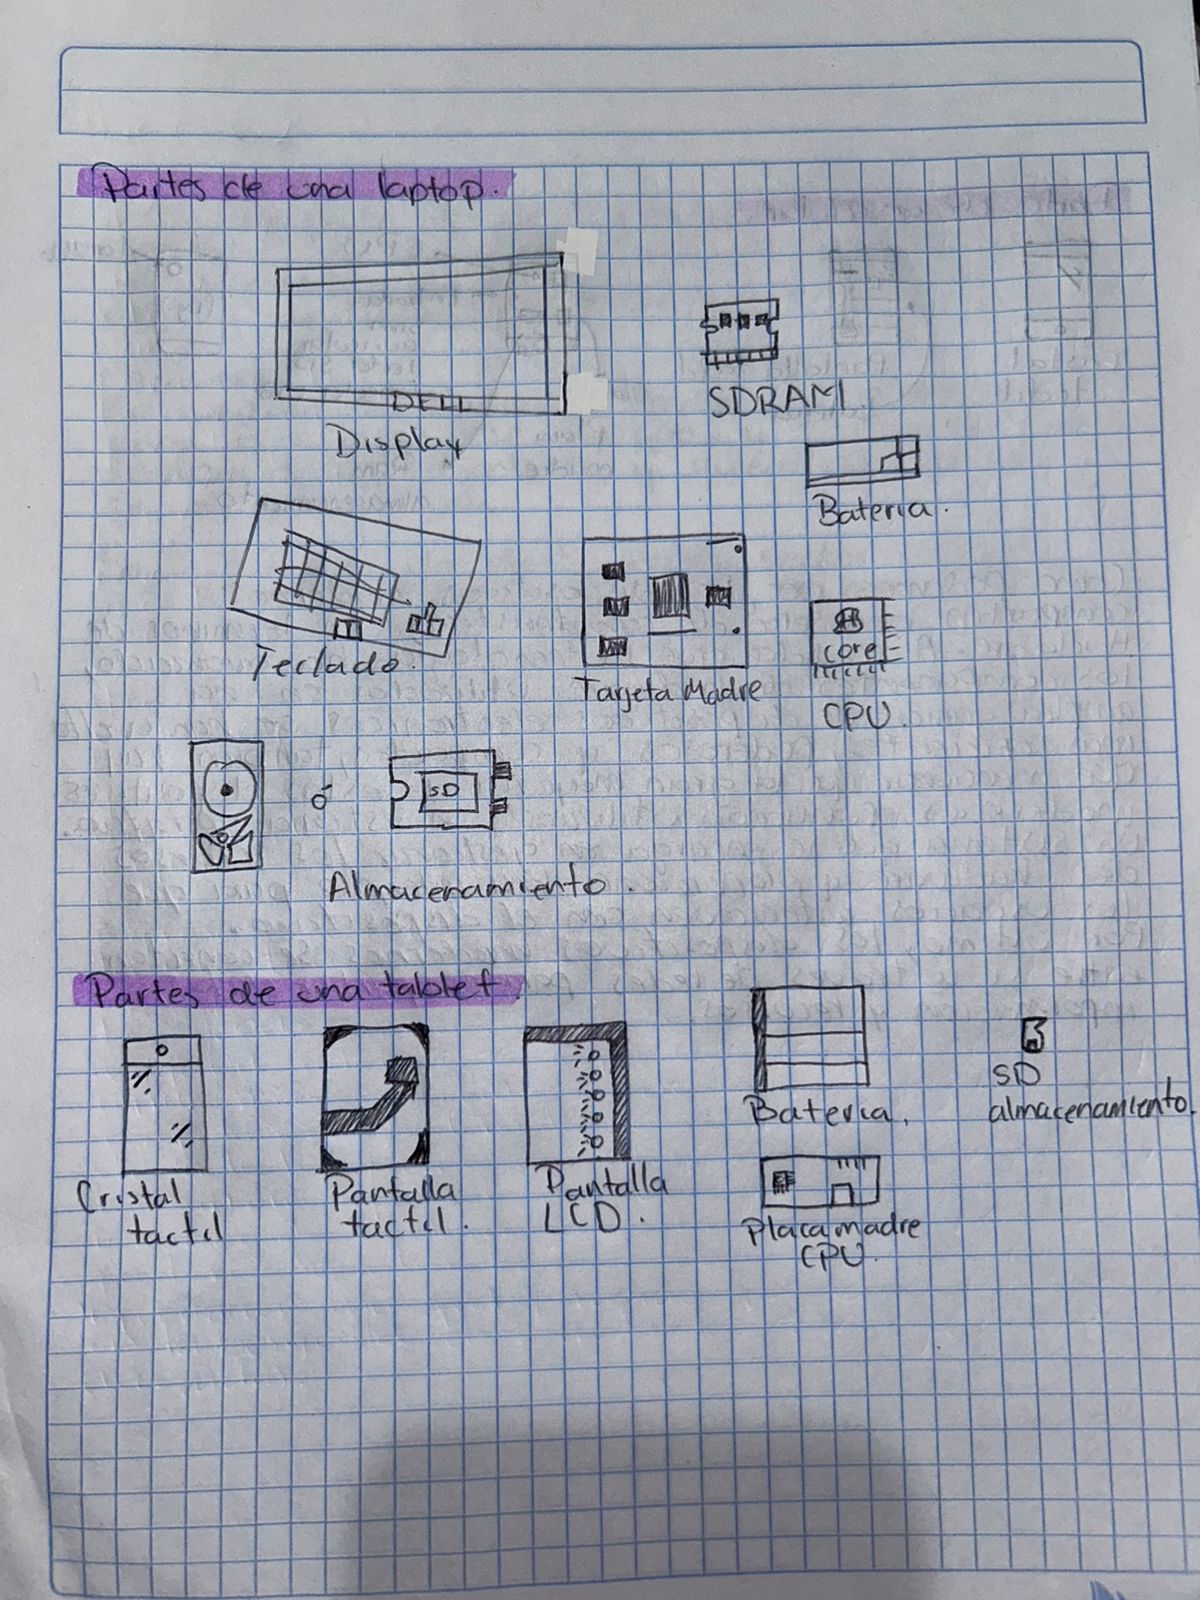 Partes de una laptop.
DELL
Display
SDRAM
Bateria.
Teclado.
Tarjeta Madre
core
CPU.
ó
SD
Almacenamiento.
Partes de una tablet.
Cristal
tactil
Pantalla
tactil.
Pantalla
LCD.
Bateria.
Placa madre
CPU.
SD
almacenamiento.